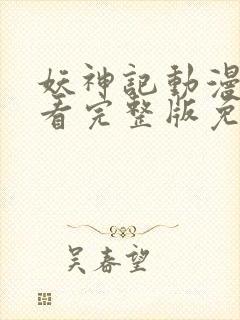 妖神記動漫
看完整版免
吴春望